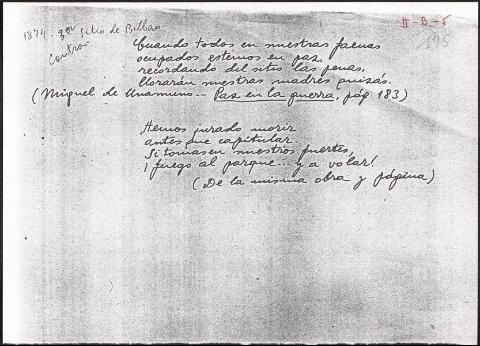 1874. 3er Sitio de Bilbao
II-B-5
195
Cuando todos en nuestras faenas
ocupados estemos en paz,
recordando del sitio las penas,
llorarán nuestras madres quizás.
(Miguel de Unamuno -- Paz en la guerra, pág. 183)
Hemos jurado morir
antes que capitular
Si tomasen nuestros fuertes,
¡fuego al parque... y a volar!
(De la misma obra y página)